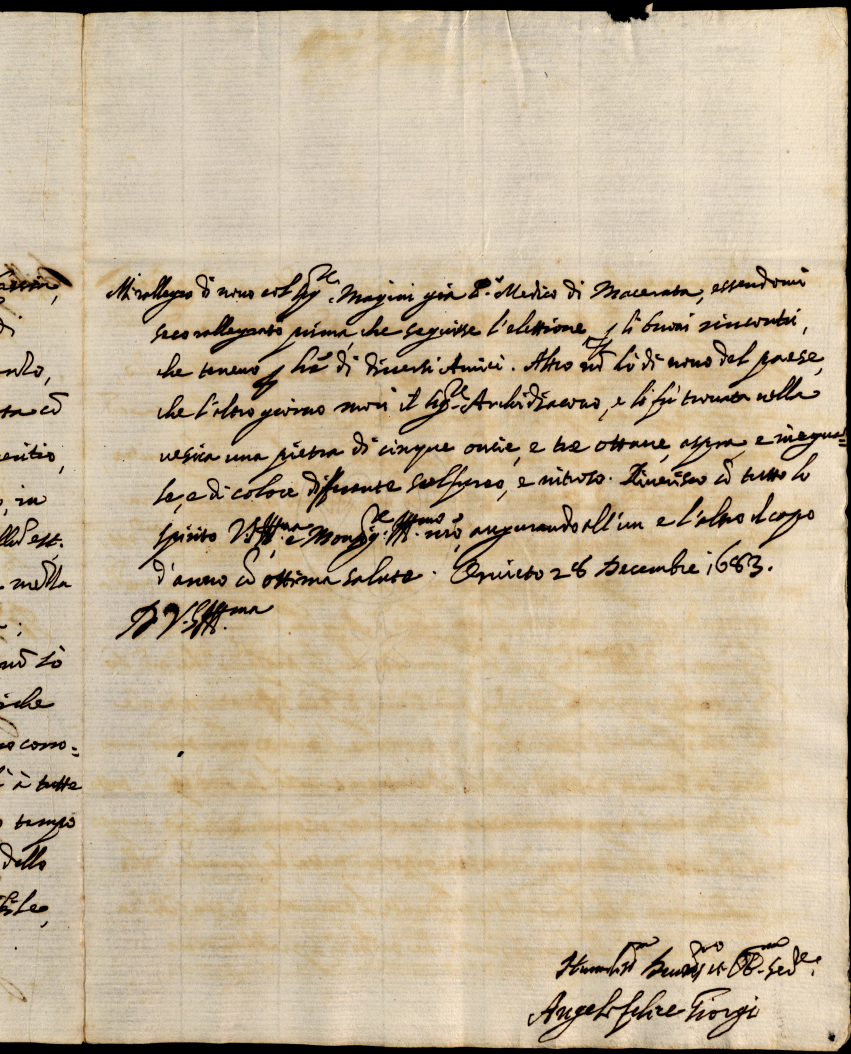 Mi rallegro di novo col Sig.re Magini già P.o Medico di Macerata, essendomi
seco rallegrato prima, che seguisse l'elettione p li buoni rincontri,
che tenevo p l're di diversi Amici. Altro nō hò di novo del paese,
che l'altro giorno morì il Sig.re Archidiacono, e li fù trovata nella
vesica una pietra di cinque oncie, e tre ottave, aspra, e inegua=
le, e di colore differente sulfureo, e nitroso. Riverisco cō tutto lo
spirito V.S. Ill.ma, e Monsig.re Ill.mo nrō, augurando all'un e l'altro il capo
d'anno cō ottima salute. Orvieto 28 Decembre 1683.
Di V.S. Ill.ma
Humiliss.mo Devotiss.mo et Obl.mo Ser.re
Angelo felice Giorgi
di
ta cō
in
nella
nō sò
à tutte
tempo
dello